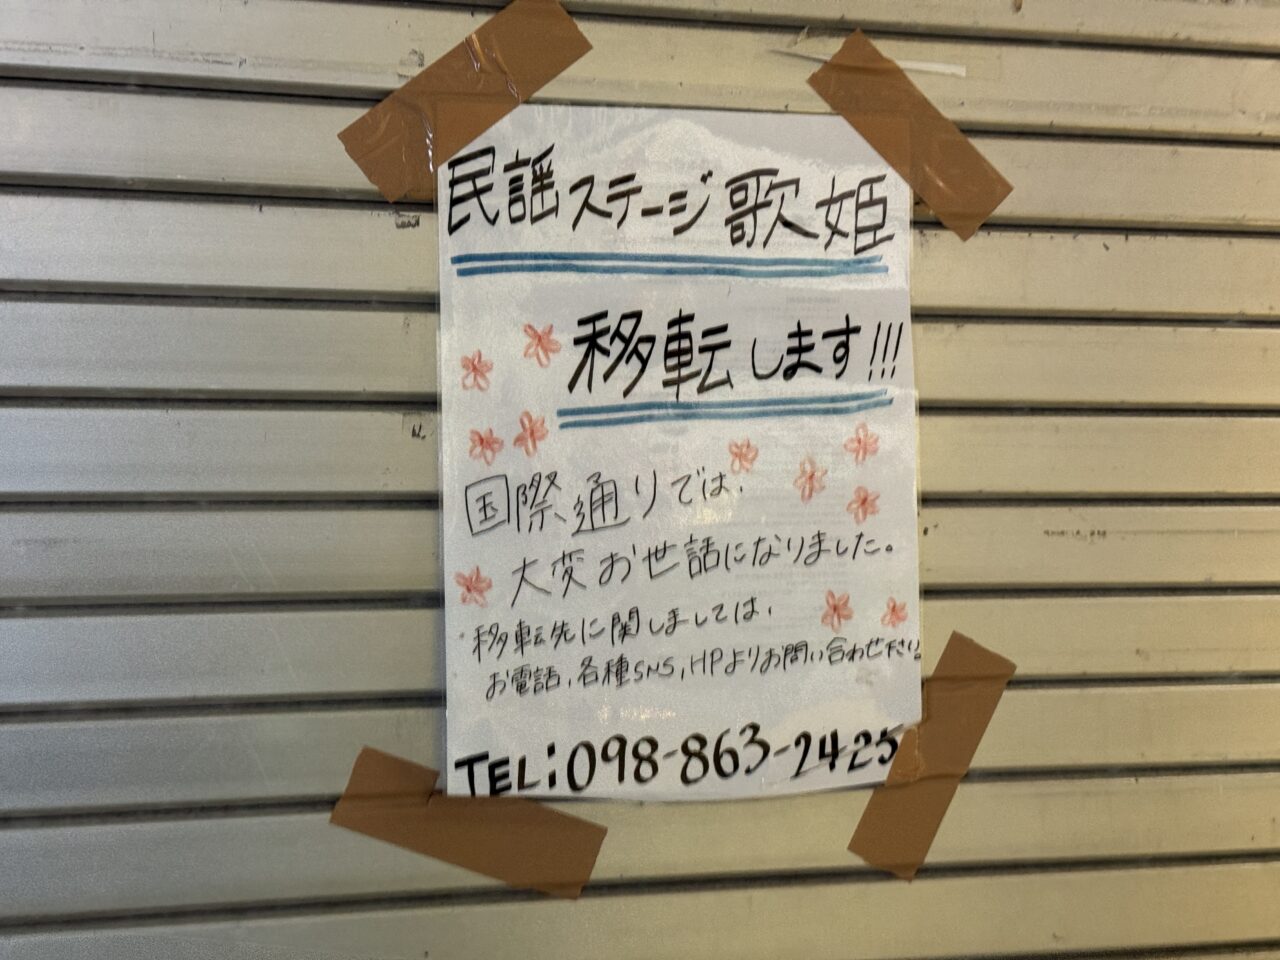 民謡ステージ歌姫
移転します!!!
国際通りでは、
大変お世話になりました。
移転先に関しましては、
お電話、各種SNS、HPよりお問い合わせ下さい。
TEL:098-863-2425